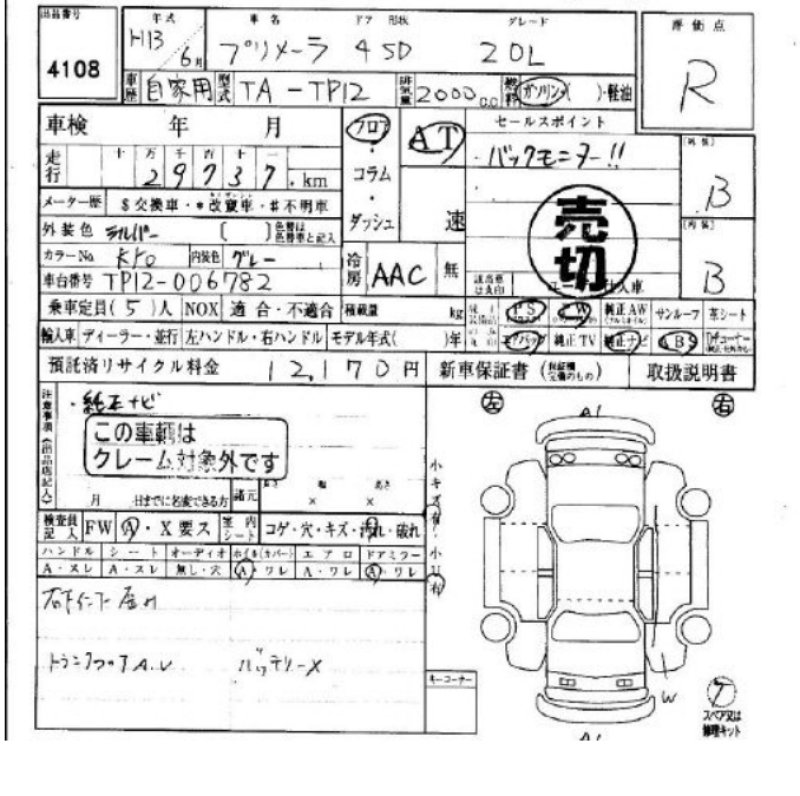 出品番号 年式 車名 ドア 形状 グレード 評価点
4108 H13 6月 プリメーラ 4 SD 20L R
車歴 自家用 型式 TA-TP12 排気量 2000cc 燃料 ガソリン( )・軽油
車検 年 月 フロア AT セールスポイント
走行 十 万 千 百 十 一 コラム バックモニター!!
29737.km ダッシュ 速 B
メーター歴 $交換車・*改竄車・#不明車 売切
外装色 シルバー ( ) 色替は色替車と記入
カラーNo KY0 内装色 グレー 冷房 AAC 無 B
車台番号 TP12-006782
乗車定員(5)人 NOX 適合・不適合 積載量 kg PS PW 純正AW サンルーフ 革シート
輸入車 ディーラー・並行 左ハンドル・右ハンドル モデル年式( )年 エアバッグ 純正TV 純正ナビ ABS
預託済リサイクル料金 12,170円 新車保証書 取扱説明書
注意事項(出品店記入) ・純正ナビ 左 右
この車輌は
クレーム対象外です
月 日までに名変できる方 諸元 長さ 幅 高さ
× ×
小キズ有・小凹有
検査員記入 FW Ⓐ・X要ス 室内シート コゲ・穴・キズ・汚れ・破れ
ハンドル シート オーディオ ホイル(カバー) エアロ ドアミラー
A・スレ A・スレ 無し・穴 A・ワレ A・ワレ A・ワレ
トランクフロア バッテリーX
キーコーナー
W
スペア又は
修理キット